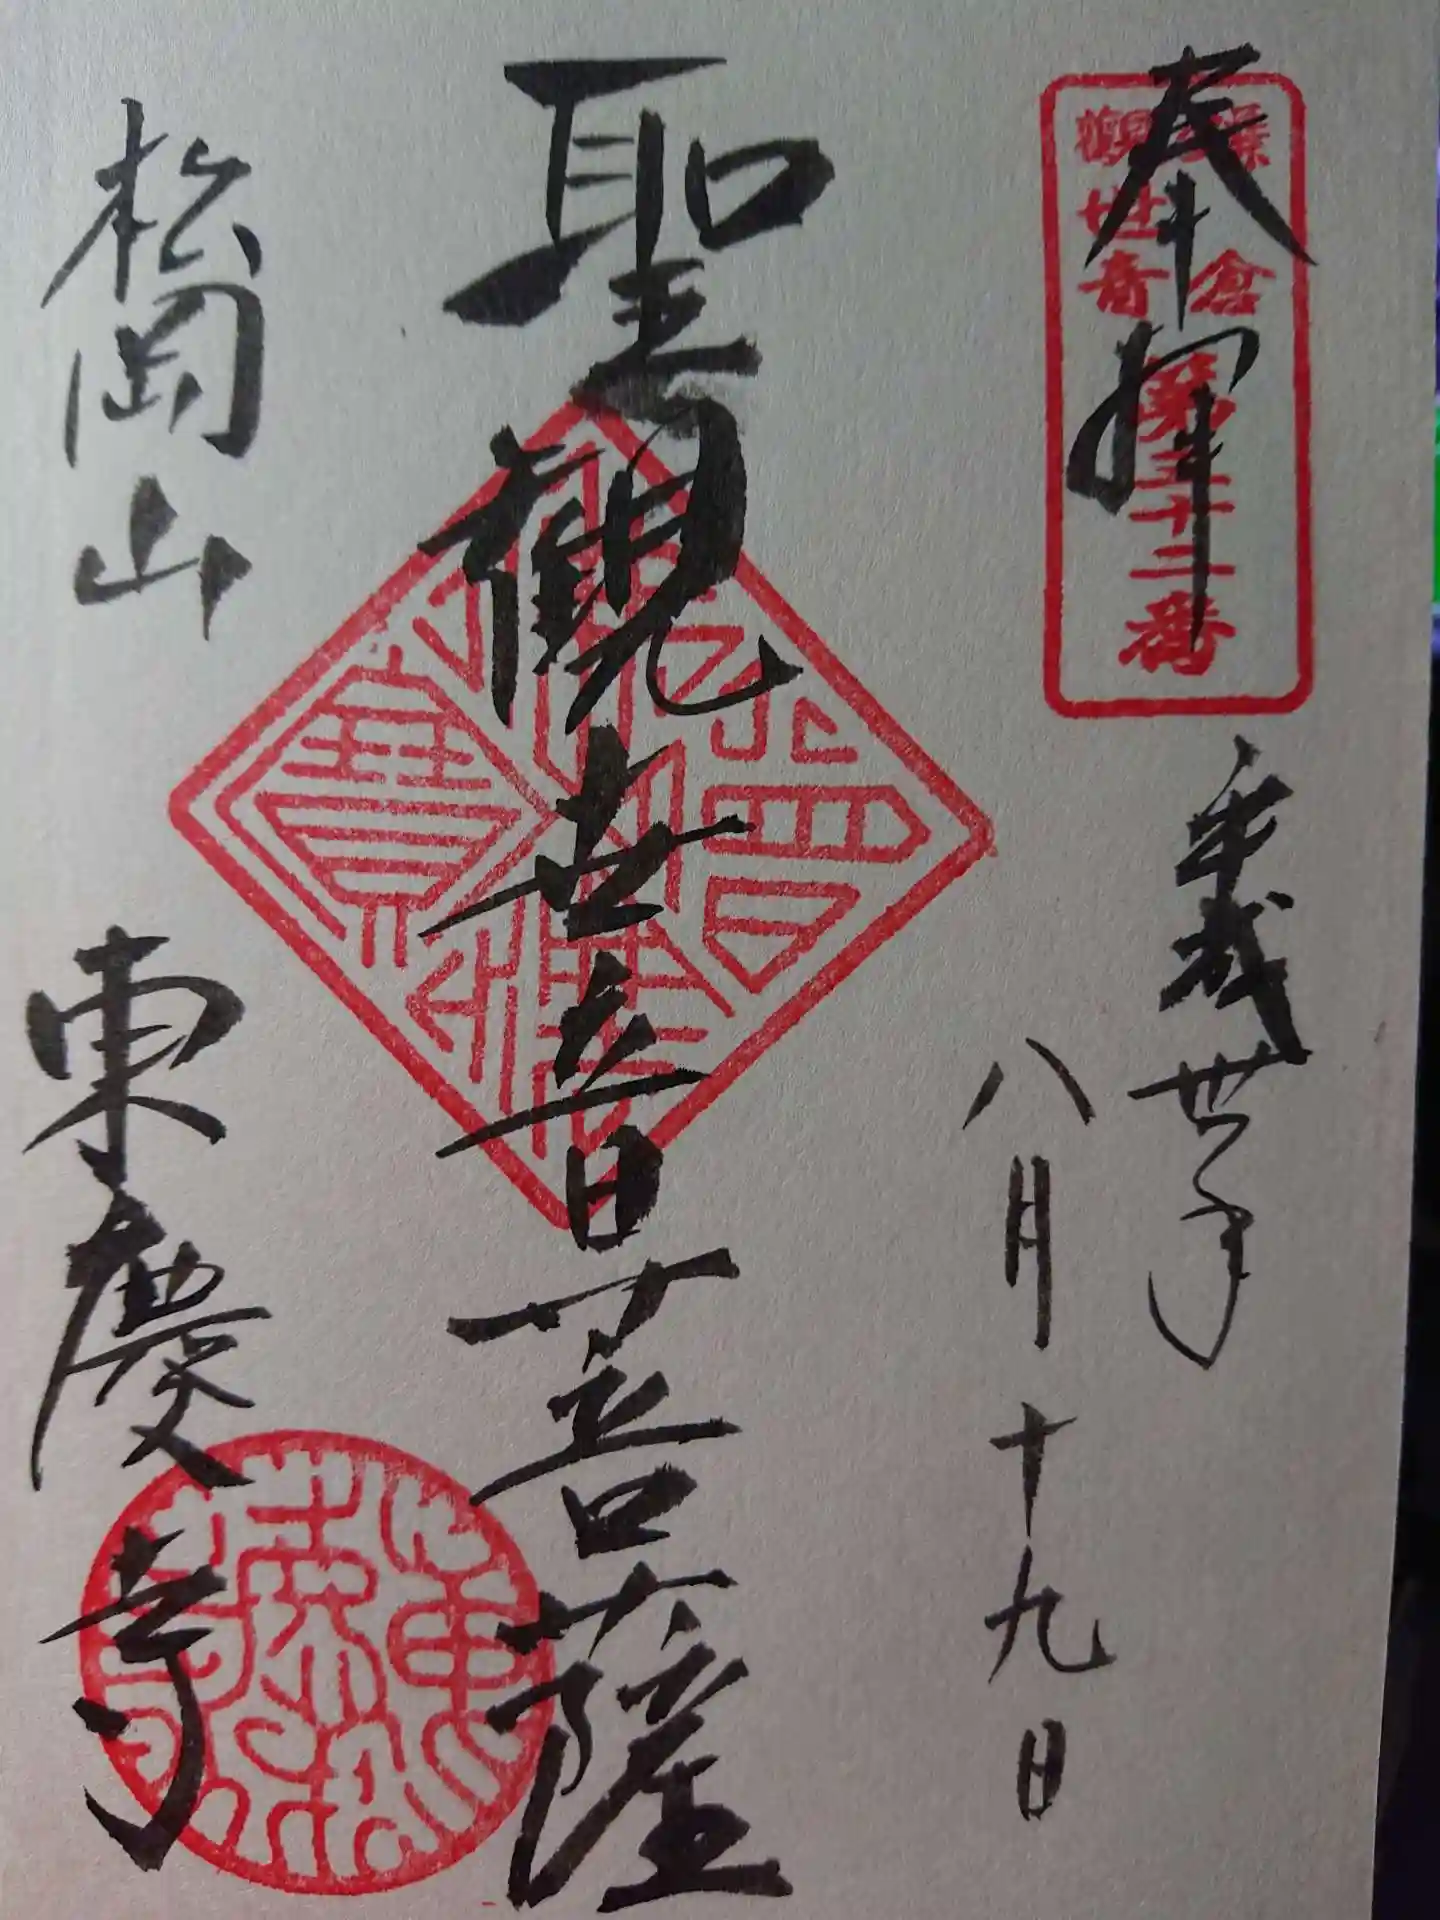 奉拝
鎌倉
観世音
第三十二番
平成卅年
八月十九日
聖観世音菩薩
松岡山
東慶寺